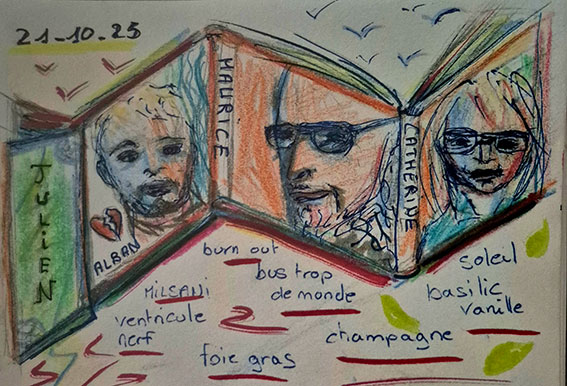 21-10-25
JULIEN
ALBAN
MAURICE
CATHERINE
burn out
bus trop
de monde
soleil
basilic
vanille
MILSANI
ventricule
nerf
champagne
foie gras